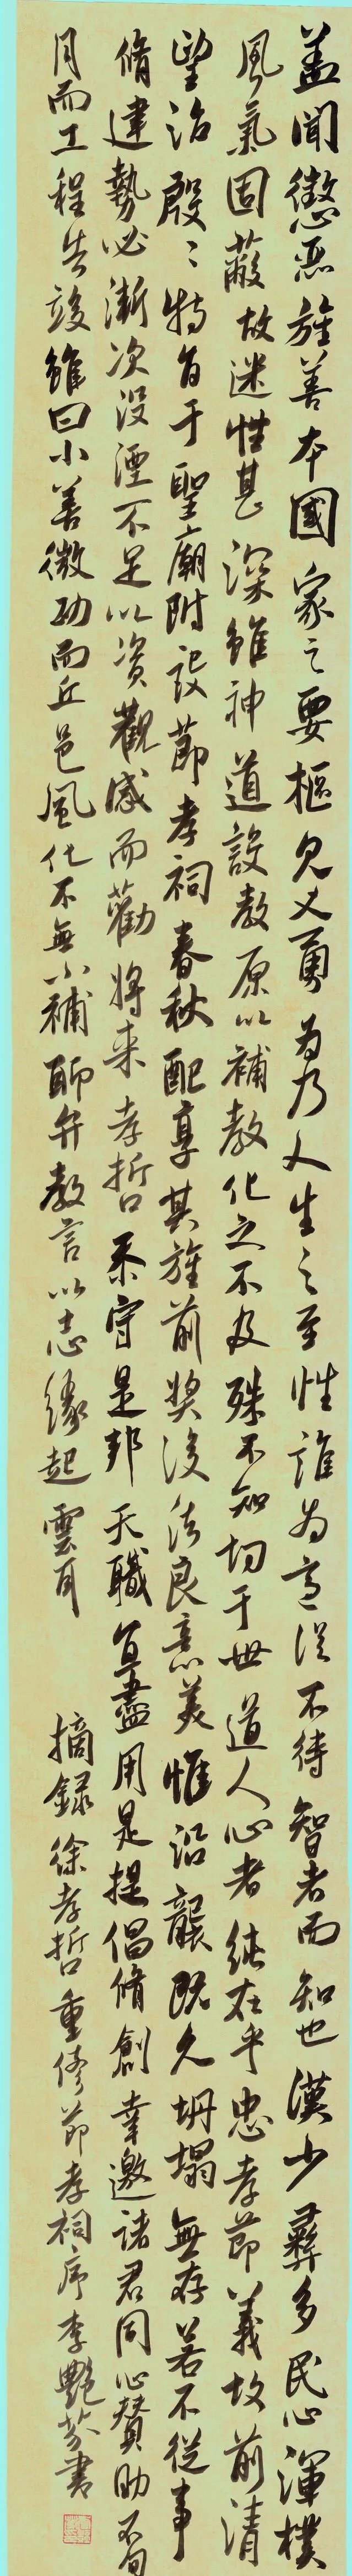 盖聞懲惡旌善本國家之要樞見义勇為乃人生之至性誰為忘從不待智者而知也漢少彝多民心渾樸
風氣固蔽故迷性甚深雖神道設教原以補教化之不及殊不知切于世道人心者純在乎忠孝節義故前清
望治殷〻特旨于聖廟附設節孝祠春秋配享其旌前獎後法良意美惟沿襲既久坍塌無存若不從事
脩建勢必漸次没湮不足以资觀感而勸將来孝哲忝守是邦天職宜盡用是提倡脩創幸邀諸君同心賛助不旬
月而工程告竣雖曰小善微功而丘邑風化不無小補聊弁数言以志缘起雲耳 摘録徐孝哲重修節孝祠序李艷芬書